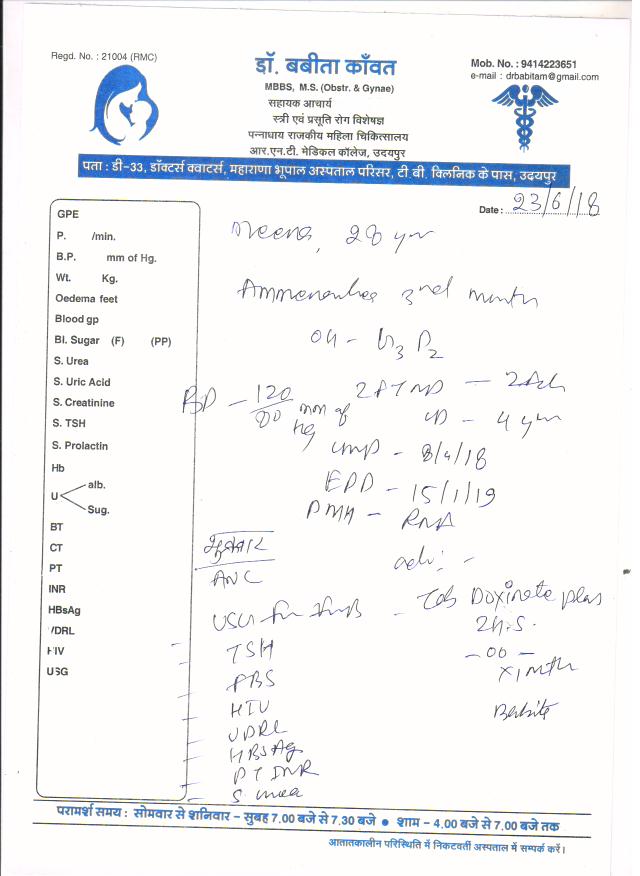 Regd. No. : 21004 (RMC)
डॉ. बबीता काँवत
MBBS, M.S. (Obstr. & Gynae)
सहायक आचार्य
स्त्री एवं प्रसूति रोग विशेषज्ञ
पन्नाधाय राजकीय महिला चिकित्सालय
आर.एन.टी. मेडिकल कॉलेज, उदयपुर
Mob. No. : 9414223651
e-mail : drbabitam@gmail.com
पता : डी-33, डॉक्टर्स क्वाटर्स, महाराणा भूपाल अस्पताल परिसर, टी.बी. क्लिनिक के पास, उदयपुर
Date : 23/6/18
GPE
P. /min.
B.P. mm of Hg.
Wt. Kg.
Oedema feet
Blood gp
Bl. Sugar (F) (PP)
S. Urea
S. Uric Acid
S. Creatinine
S. TSH
S. Prolactin
Hb
U alb.
Sug.
BT
CT
PT
INR
HBsAg
VDRL
HIV
USG
Meena, 28 yr
3rd month
OH - G3 P2
BP - 120/80 mm of Hg
2 FTND -
LD - 4 yr
LMP - 8/4/18
EDD - 15/1/19
शुक्रवार
ANC
adv: -
USG for
Tab Doxinate plus
2 H.S.
- 00 -
x 1 mth
TSH
FBS
HIV
VDRL
HBsAg
PT INR
S. urea
परामर्श समय : सोमवार से शनिवार - सुबह 7.00 बजे से 7.30 बजे ● शाम - 4.00 बजे से 7.00 बजे तक
आतातकालीन परिस्थिति में निकटवर्ती अस्पताल में सम्पर्क करें।